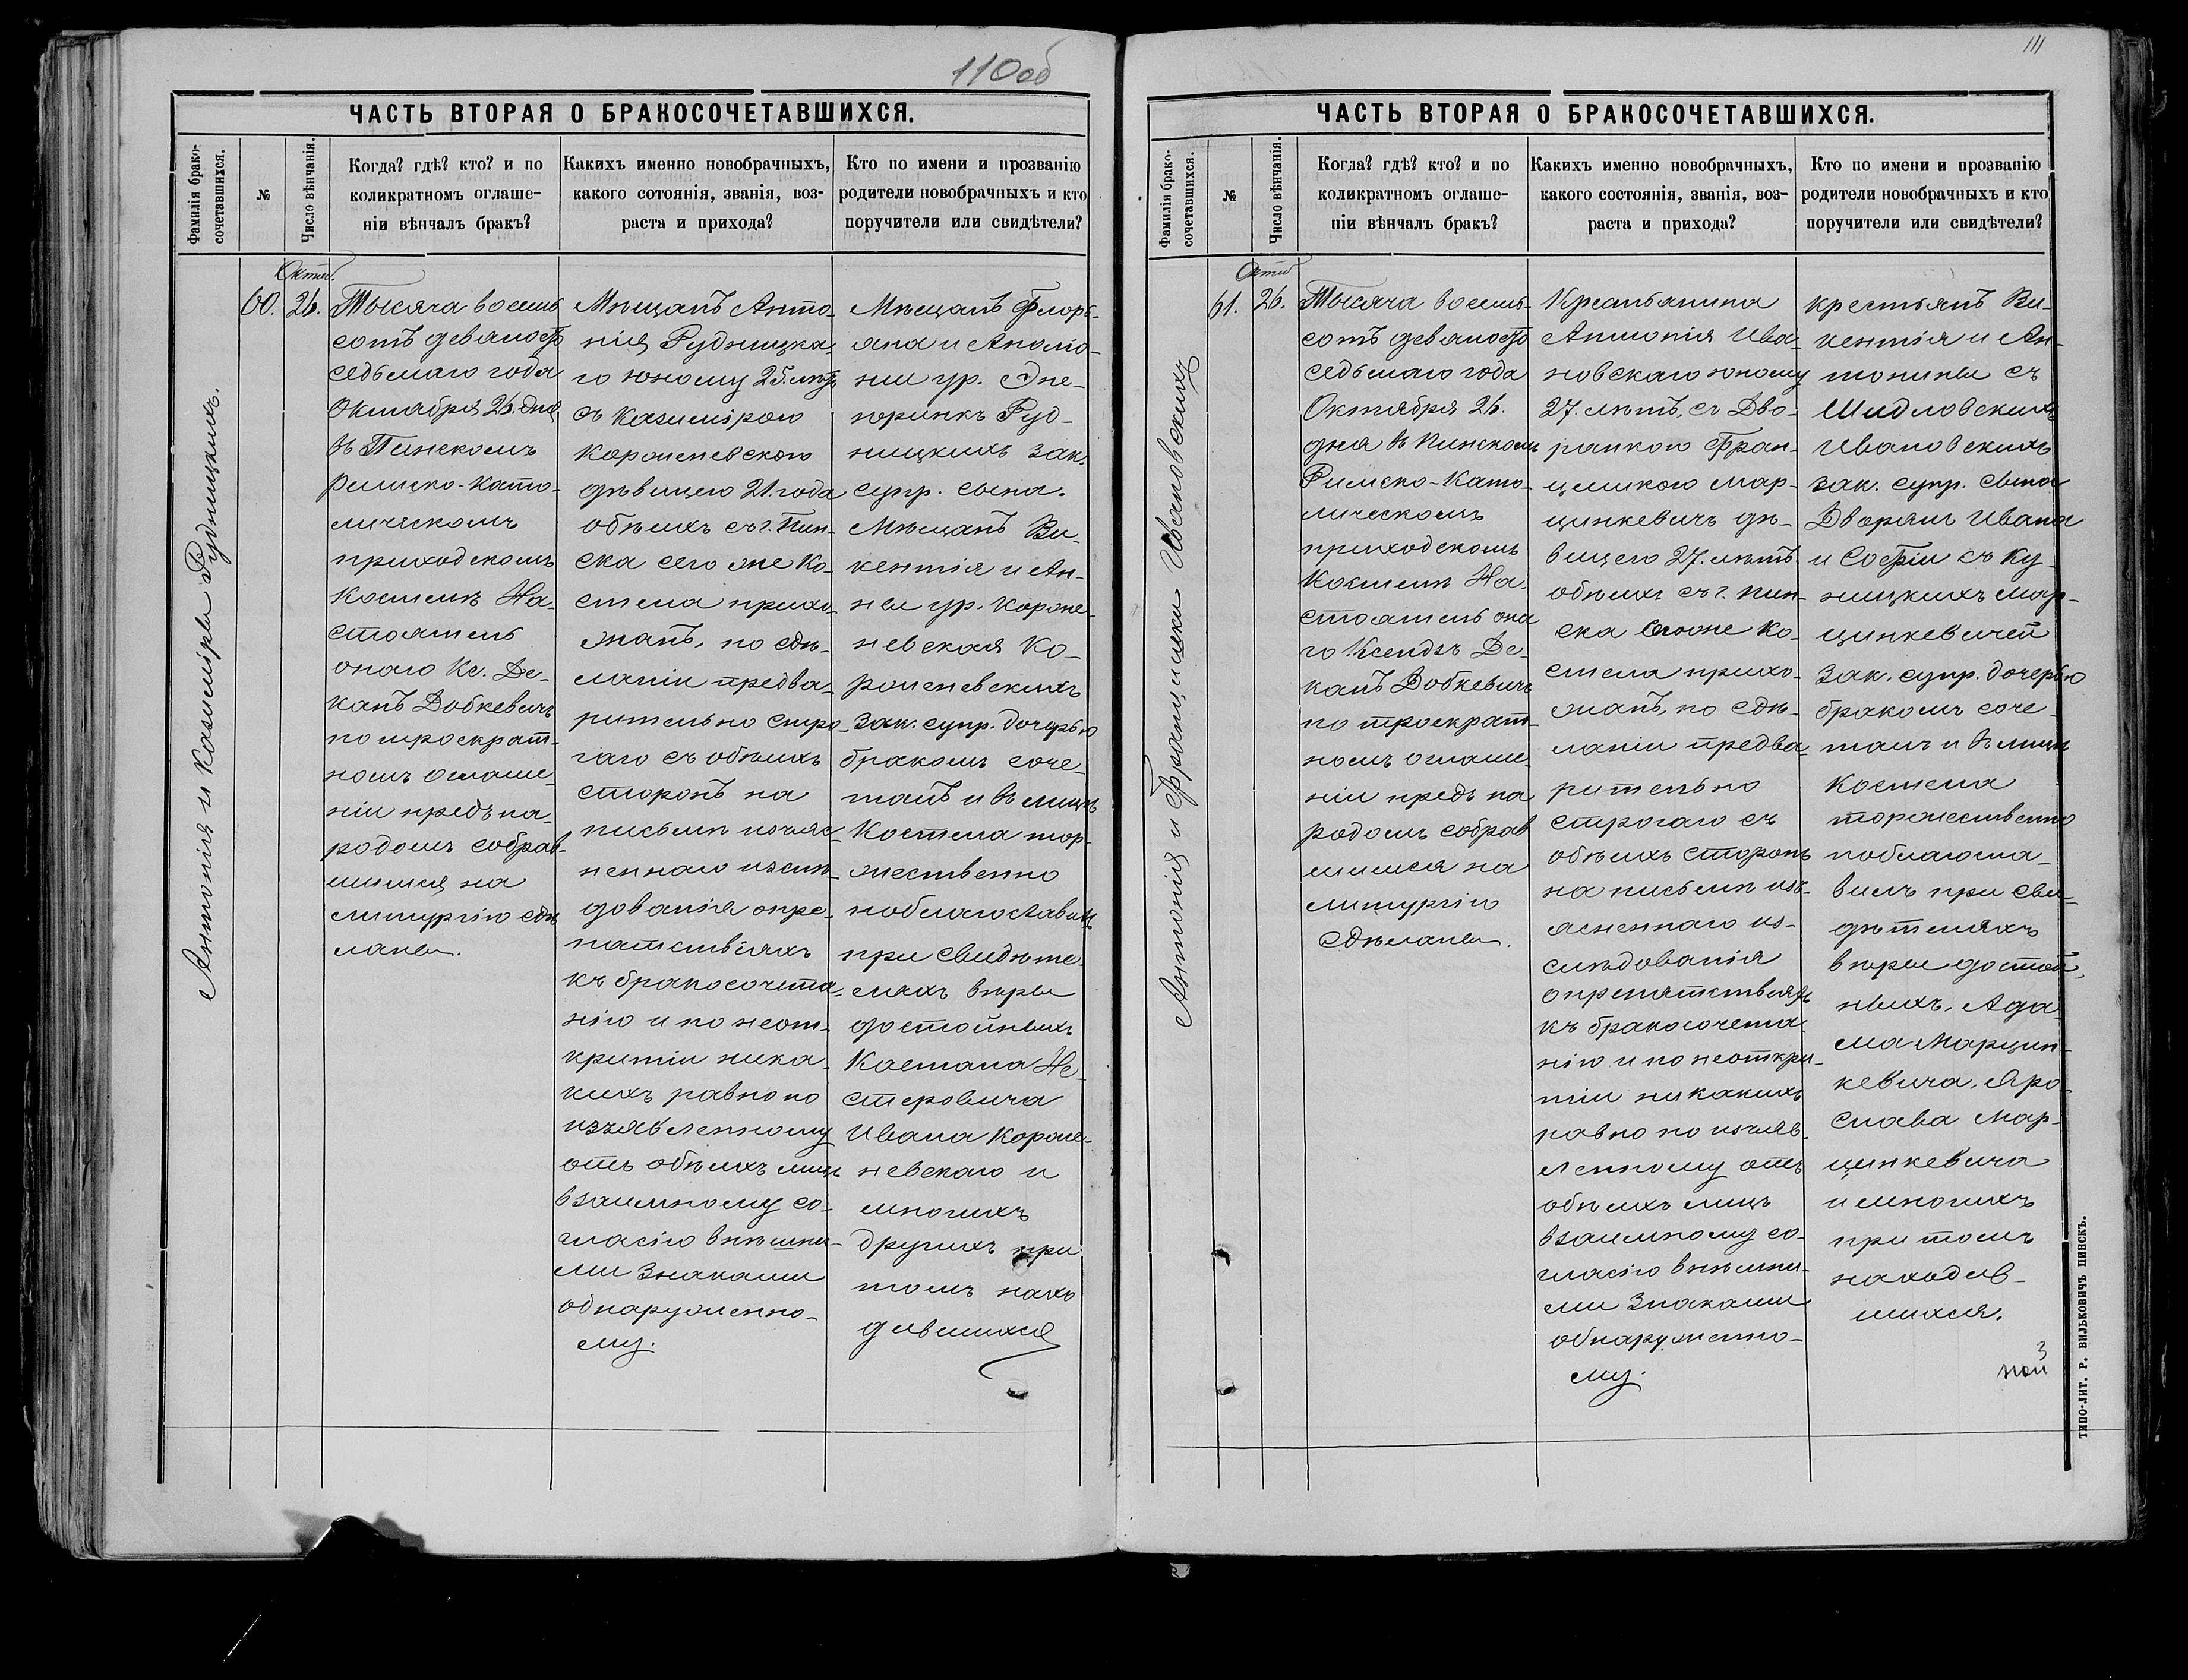 110об
ЧАСТЬ ВТОРАЯ О БРАКОСОЧЕТАВШИХСЯ.
Фамилія брако-
сочетавшихся.
№
Число вѣнчанія.
Когда? гдѣ? кто? и по
коликратномъ оглаше-
ніи вѣнчалъ бракъ?
Какихъ именно новобрачныхъ,
какого сотоянія, званія, воз-
раста и прихода?
Кто по имени и прозванію
родители новобрачныхъ и кто
поручители или свидѣтели?
Антонія и Казиміры Рудницкихъ.
Октяб.
60.
26.
Тысяча восемь
сотъ девяносто
седьмаго года
Октября 26. дня
въ Пинскомъ
Римско-Като-
лическомъ
приходскомъ
Костелѣ На-
стоятель
онаго Кс. Де-
канъ Добкевичъ
по троекрат-
номъ оглаше-
ніи предъ на-
родомъ собрав-
шимся на
литургію сдѣ
ланы.
Мѣщанъ Анто-
нія Рудницка-
го юному 25. лѣтъ
съ Казимірою
Короневскою
дѣвицею 21. года
обѣихъ съ г. Пин-
ска сего же Ко-
стела прихо-
жанъ, по сдѣ-
ланіи предва-
рительно стро-
гаго съ обѣихъ
сторонъ на
письмѣ изъяс-
неннаго изслѣ-
дованія о пре-
пятствіяхъ
къ бракосочета-
нію и по неот-
критіи ника-
кихъ равно по
изъявленному
отъ обѣихъ лицъ
взаимному со-
гласію внѣшни-
ми знаками
обнаруженно-
му.
Мѣщанъ Флорі-
яна и Аполо-
ніи ур.
Руд-
ницкихъ зак.
супр. сына.
Мѣщанъ Ви-
кентія и Ан-
ны ур. Короне-
невская Ко-
роненевскихъ
зак. супр. дочерью
бракомъ соче-
талъ и въ лицѣ
Костела тор-
жественно
поблагославилъ
при свидѣте-
ляхъ вѣры
достойныхъ
Каетана Не-
стеровича
Ивана Короне-
невскаго и
многихъ
другихъ при
томъ нахо
дившихся
111
ЧАСТЬ ВТОРАЯ О БРАКОСОЧЕТАВШИХСЯ.
Фамилія брако-
сочетавшихся.
№
Число вѣнчанія.
Когда? гдѣ? кто? и по
коликратномъ оглаше-
ніи вѣнчалъ бракъ?
Какихъ именно новобрачныхъ,
какого состоянія, званія, воз-
раста и прихода?
Кто по имени и прозванію
родители новобрачныхъ и кто
поручители или свидѣтели?
Антонія и Францишки Ивановскихъ
Октяб
61.
26.
Тысяча восемь-
сотъ девяносто
седьмаго года
Октября 26.
дня въ Пинскомъ
Римско-Като-
лическомъ
приходскомъ
Костелѣ На-
стоятель она
го Ксендзъ Де-
канъ Добкевичъ
по троекрат-
номъ оглаше-
ніи предъ на
родомъ собрав
шимся на
литургію
сдѣланы.
Крестьянина
Антонія Ива-
новскаго юному
27. лѣтъ, съ Дво-
рянкою Фран-
цишкою Мар-
цинкевичъ дѣ-
вицею 27. лѣтъ.
обѣихъ съ г. Пин-
ска сегоже Ко-
стела прихо-
жанъ, по сдѣ-
ланіи предва-
рительно
строгаго съ
обѣихъ сторонъ
на письмѣ изъ-
ясненнаго из-
слѣдованія
о препятствіяхъ
къ бракосочета-
нію и по неоткри-
тіи никакихъ
равно по изъяв-
ленному отъ
обѣихъ лицъ
взаимному со-
гласію внѣшни-
ми знаками
обнаруженно-
му.
крестьянъ Ви-
кентія и Ан-
тонины съ
Шидловскихъ
Ивановскихъ
зак. супр. сына
Дворянъ Ивана
и Софіи съ Ку-
ницкихъ Мар-
цинкевичей
зак. супр. дочерью
бракомъ соче-
талъ и въ лицѣ
Костела
торжественно
поблагосла-
вилъ при сви-
дѣтеляхъ
вѣры достой-
ныхъ, Ада-
ма Марцин-
кевича, Яро-
слава Мар-
цинкевича
и многихъ
при томъ
находив-
шихся.
ТИПО-ЛИТ. Р. ВИЛЬКОВИЧЪ ПИНСКЪ.